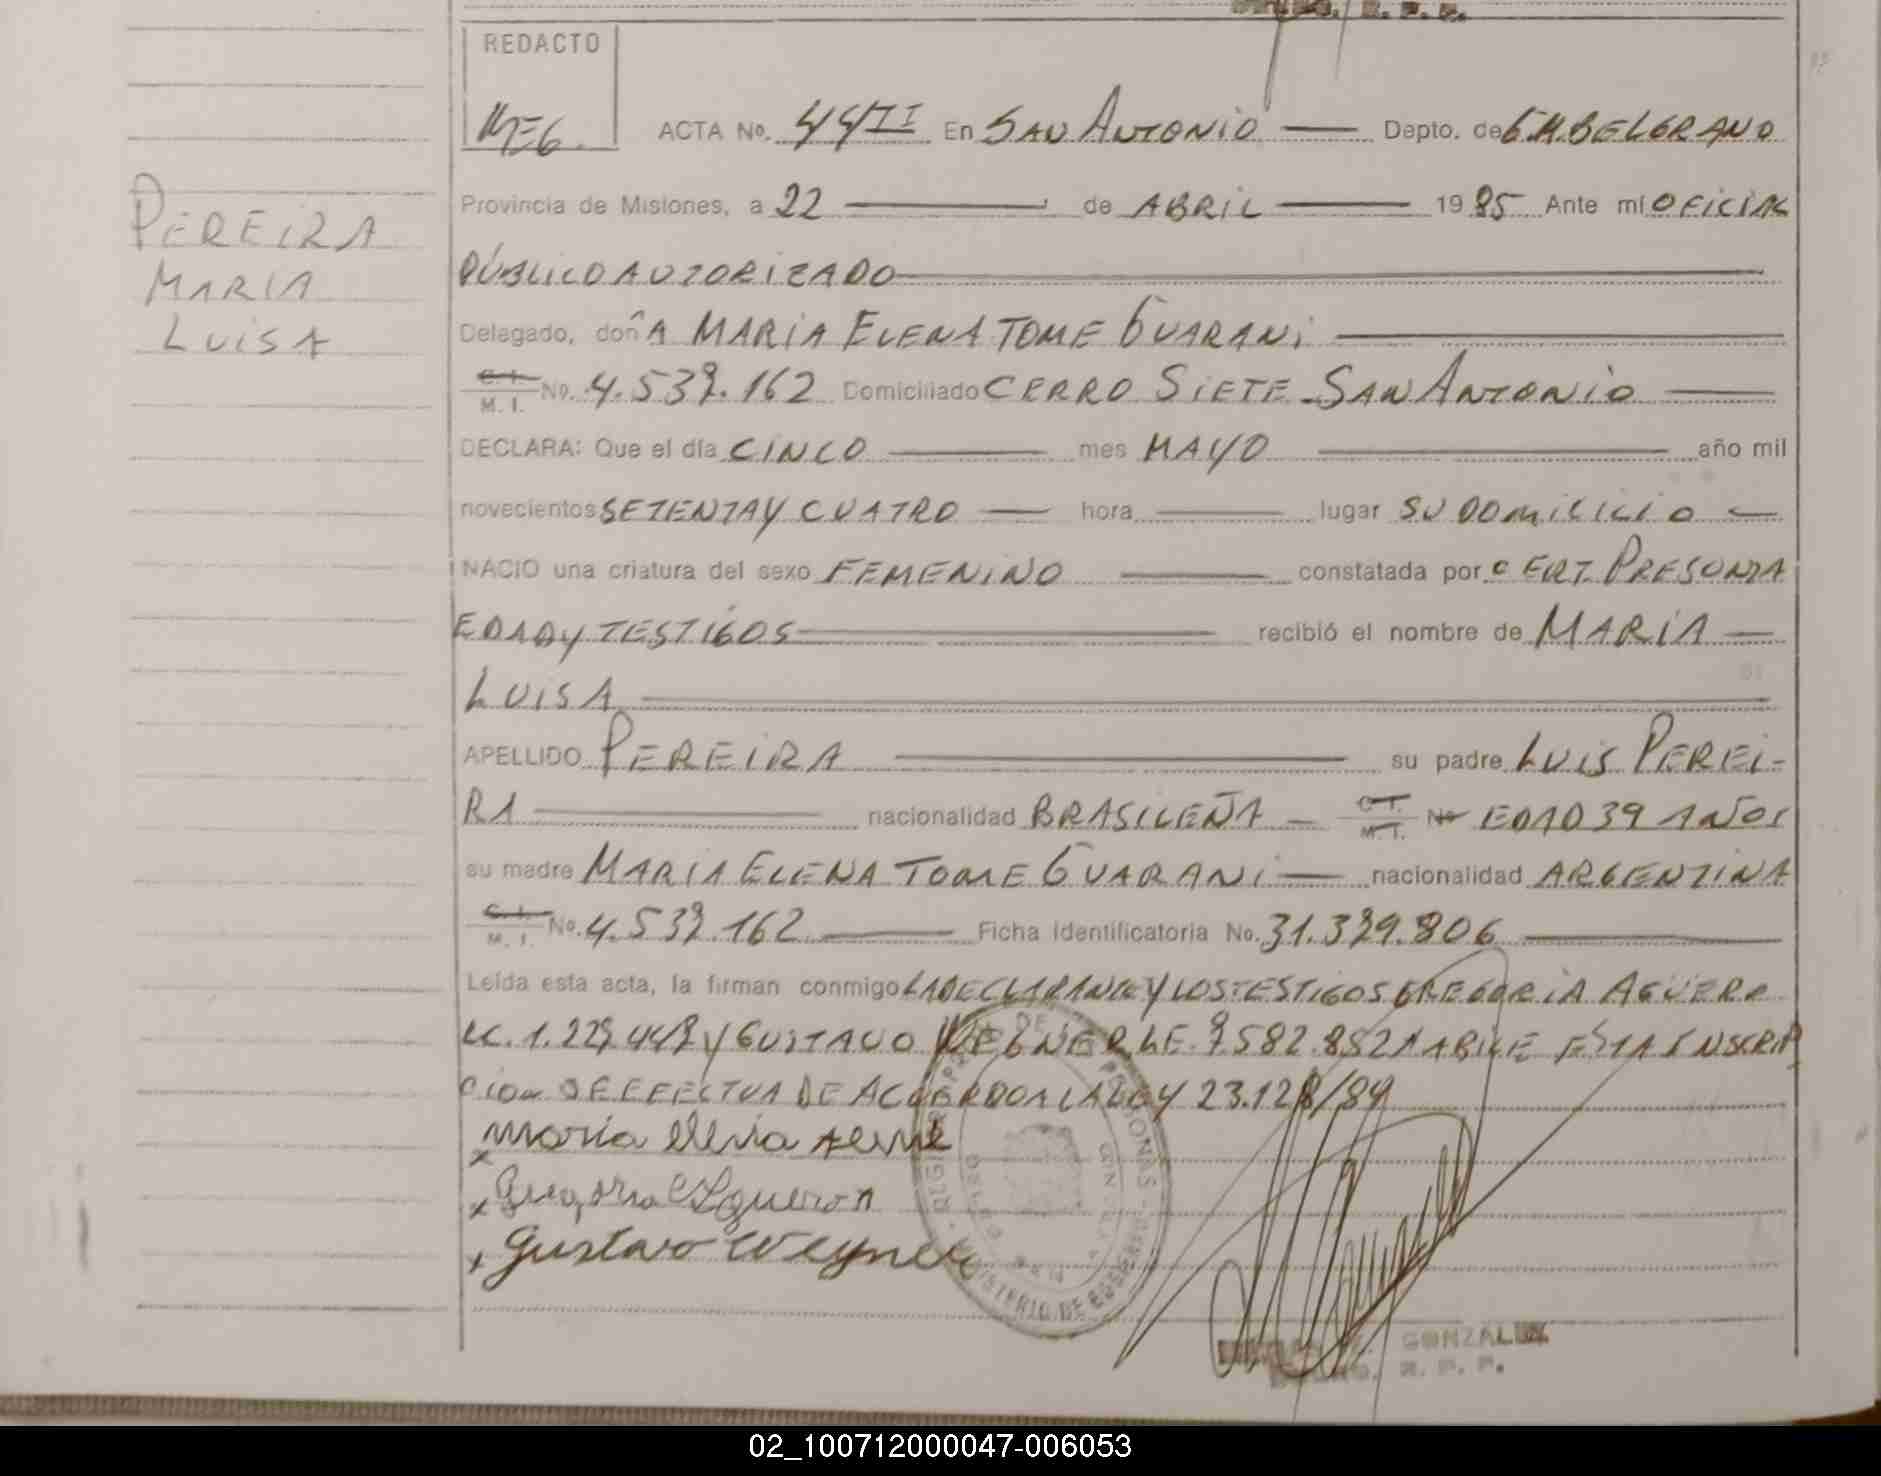 REDACTO
MEG.
ACTA No. 44 TI En SAN ANTONIO Depto. de G.M.BELGRANO
Provincia de Misiones, a 22 de ABRIL 1985 Ante mí OFICIAL
PÚBLICO AUTORIZADO
Delegado, doñA MARIA ELENA TOME GUARANI
C. I. M. I. No. 4.539.162 Domiciliado CERRO SIETE - SAN ANTONIO
DECLARA: Que el día CINCO mes MAYO año mil
novecientos SETENTA Y CUATRO hora lugar SU DOMICILIO
NACIO una criatura del sexo FEMENINO constatada por CERT. PRESUNTA
EDAD Y TESTIGOS recibió el nombre de MARIA
LUISA
APELLIDO PEREIRA su padre LUIS PEREI-
RA nacionalidad BRASILEÑA C. I. M. I. No EDAD 39 AÑOS
su madre MARIA ELENA TOME GUARANI nacionalidad ARGENTINA
C. I. M. I. No. 4.539.162 Ficha identificatoria No. 31.399.806
Leída esta acta, la firman conmigo LA DECLARANTE Y LOS TESTIGOS GREGORIA AGUERO
LC. 1.229.449 Y GUSTAVO WEGNER LE. 7.582.852 ESTA INSCRIP
CION SE EFECTUA DE ACUERDO A LA LEY 23.128/84
PEREIRA
MARIA
LUISA
Maria
x Gregoria Agueron
x Gustavo Wegner
REGISTRO DE PERSONAS
MINISTERIO DE GOBIERNO
GONZALEZ
R. P. P.
02_100712000047-006053